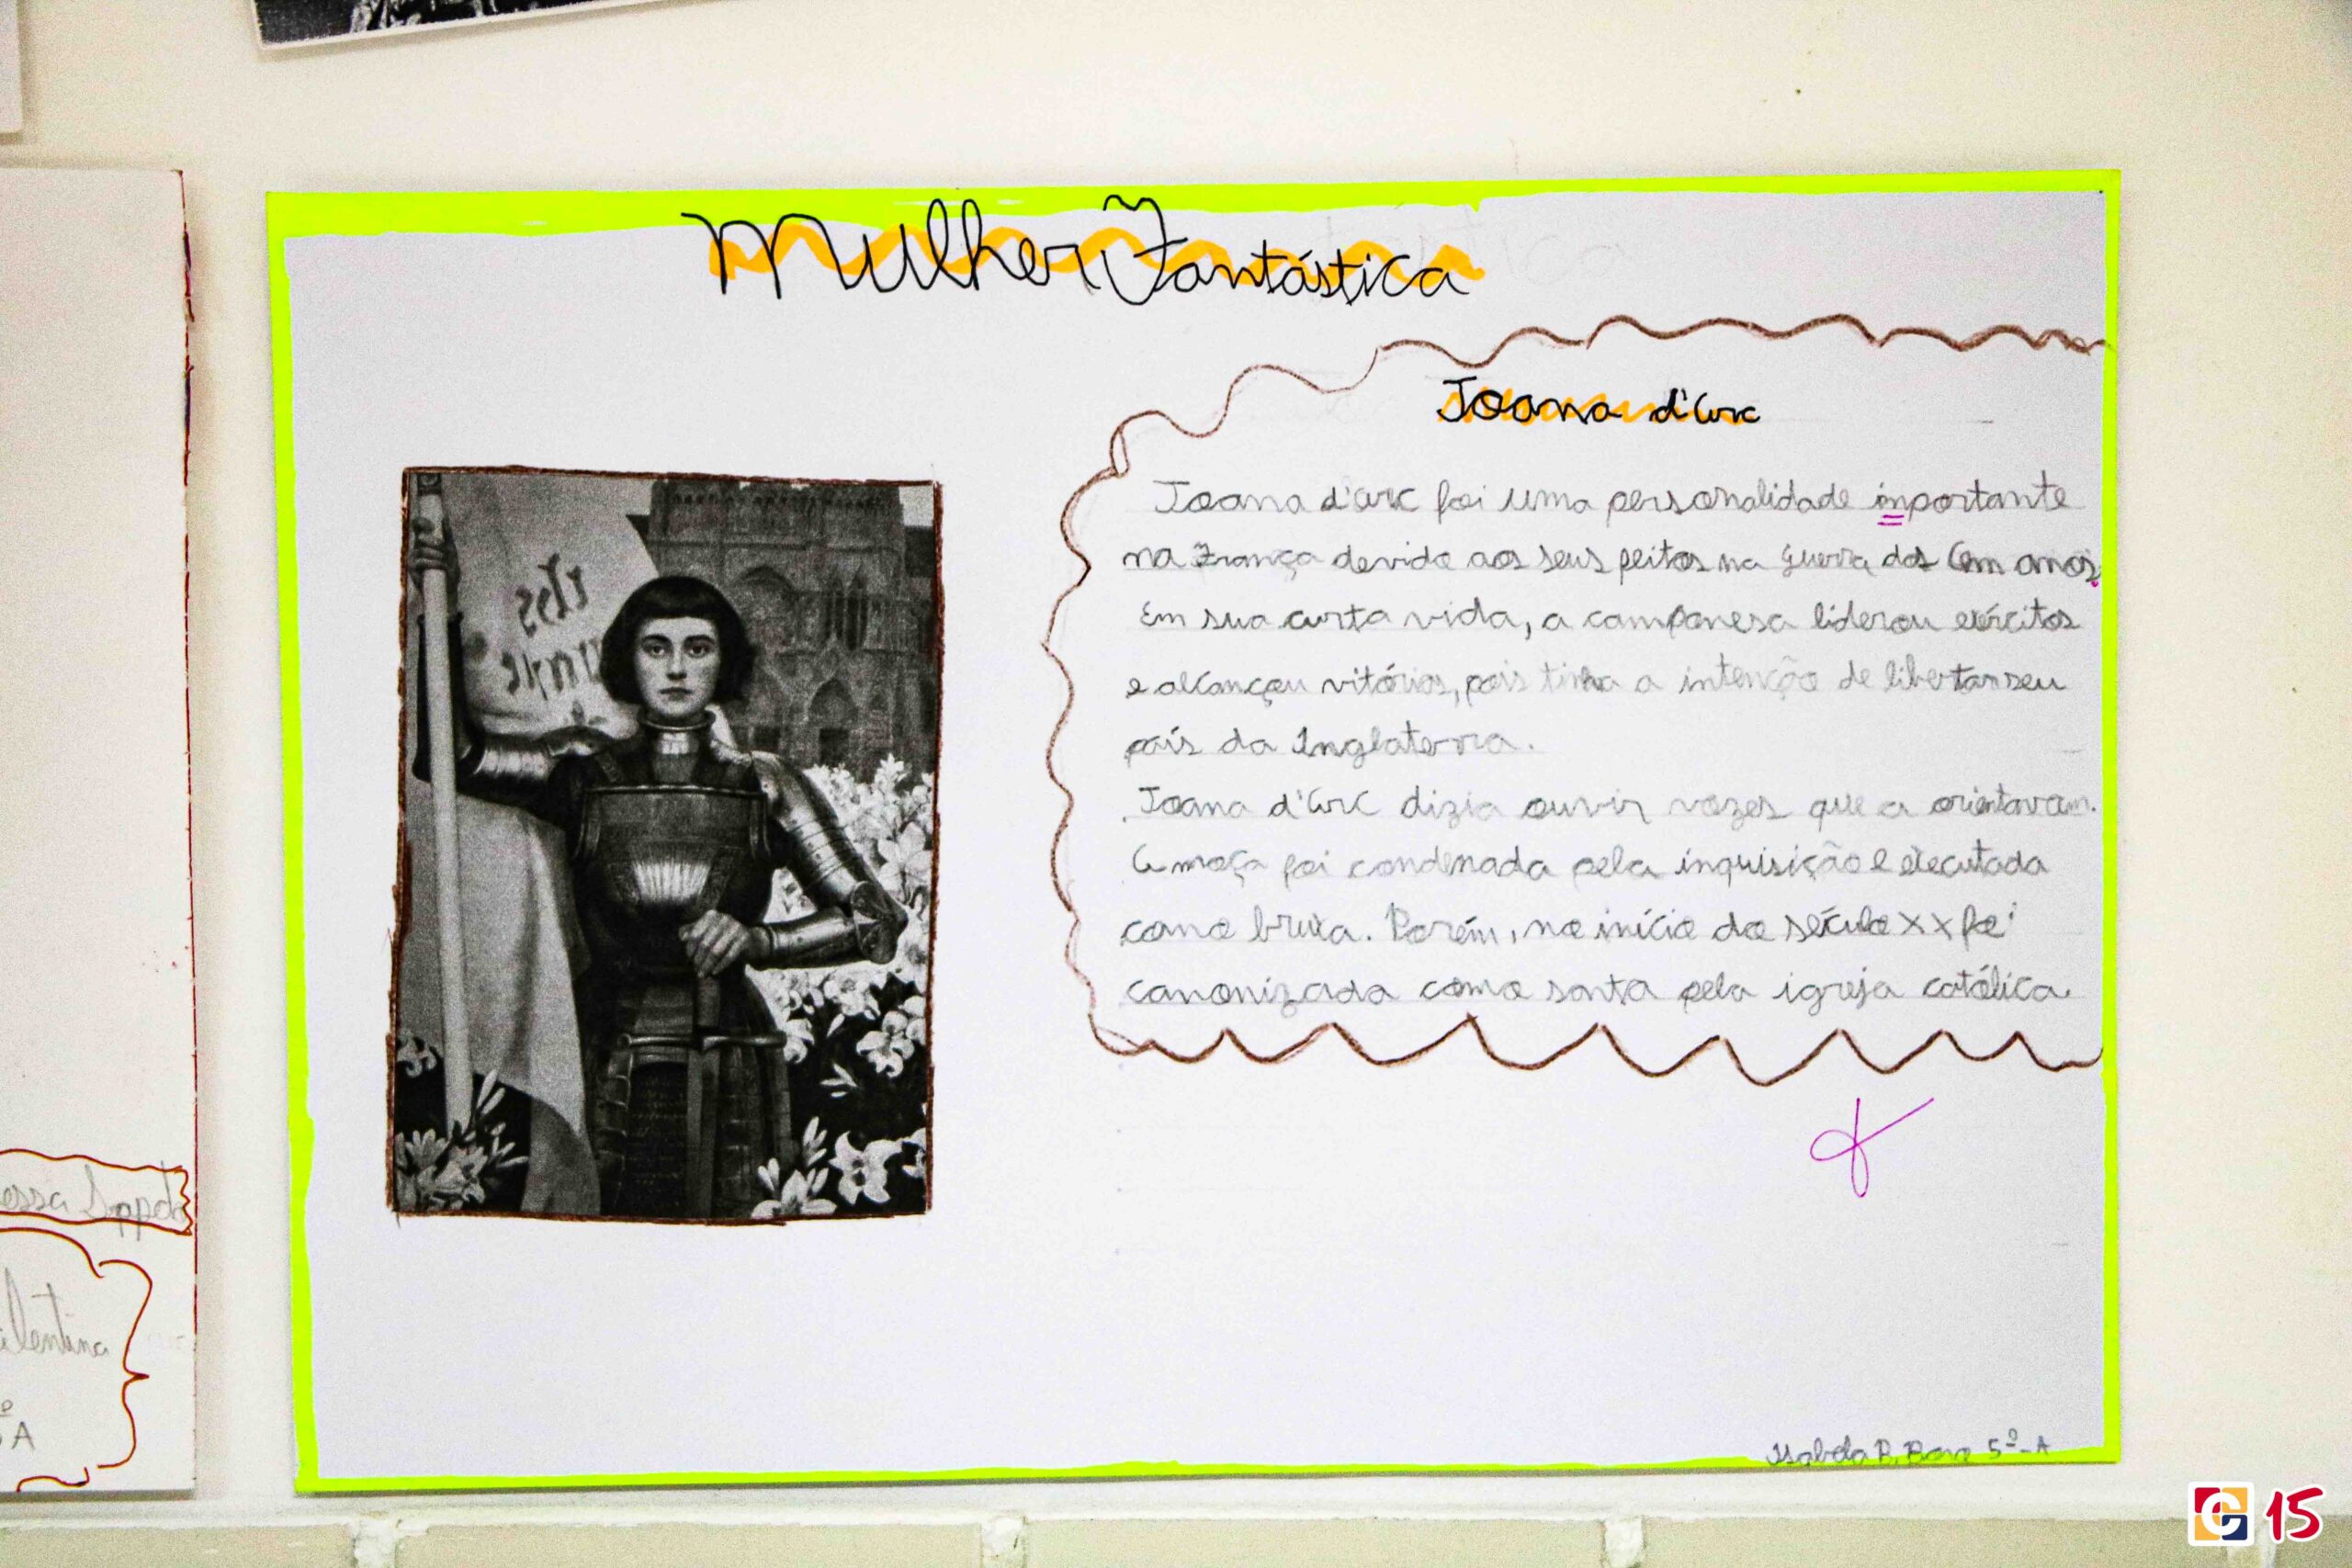 Mulher Fantástica
Joana d'Arc
Joana d'Arc foi uma personalidade inportante
na França devido aos seus feitos na Guerra dos Cem anos.
Em sua curta vida, a camponesa liderou exércitos
e alcançou vitórias, pois tinha a intenção de libertar seu
país da Inglaterra.
Joana d'Arc dizia ouvir vozes que a orientavam.
A moça foi condenada pela inquisição e executada
como bruxa. Porém, no início do século XX foi
canonizada como santa pela igreja católica.
Isabela B. 5º-A
essa
alentina
º
A
15